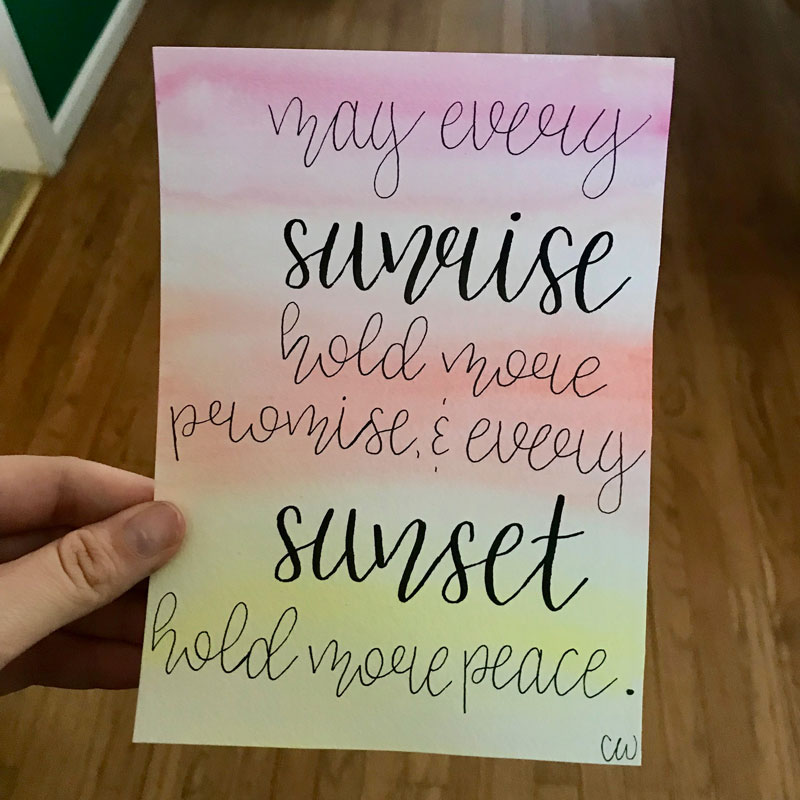 may every
sunrise
hold more
promise, & every
sunset
hold more peace.
CW